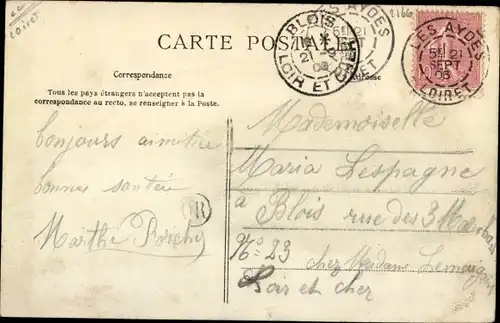 Loiret
2166
CARTE POSTALE
BLOIS
21 -9
06
LOIR ET CHER
LES AYDES
21
LOIRET
LES AYDES
5E 21
SEPT
06
LOIRET
Correspondance
Adresse
Tous les pays étrangers n'acceptent pas la
correspondance au recto, se renseigner à la Poste.
Bonjours
bonnes santée
Marthe
OR
Mademoiselle
Maria Lespagne
à Blois rue des 3 Marchands
No 23 chez Madame
Loir et cher